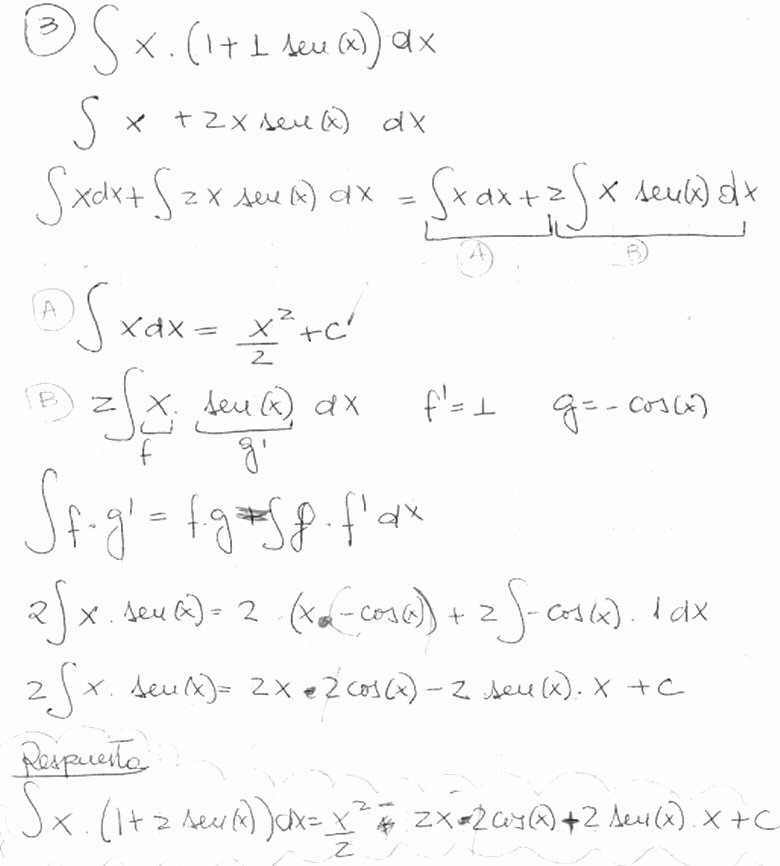 3 ∫ x · (1 + 1 sen(x)) dx
∫ x + 2x sen(x) dx
∫ xdx + ∫ 2x sen(x) dx = ∫ x dx + 2 ∫ x sen(x) dx
A B
A ∫ xdx = x²/2 + C'
B 2 ∫ x · sen(x) dx f' = 1 g = -cos(x)
f g'
∫ f · g' = f · g - ∫ g · f' dx
2 ∫ x · sen(x) = 2 · (x · (-cos(x)) + 2 ∫ -cos(x) · 1 dx
2 ∫ x · sen(x) = 2x · 2 cos(x) - 2 sen(x) · x + C
Respuesta
∫ x · (1 + 2 sen(x)) dx = x²/2 - 2x · 2 cos(x) + 2 sen(x) · x + C